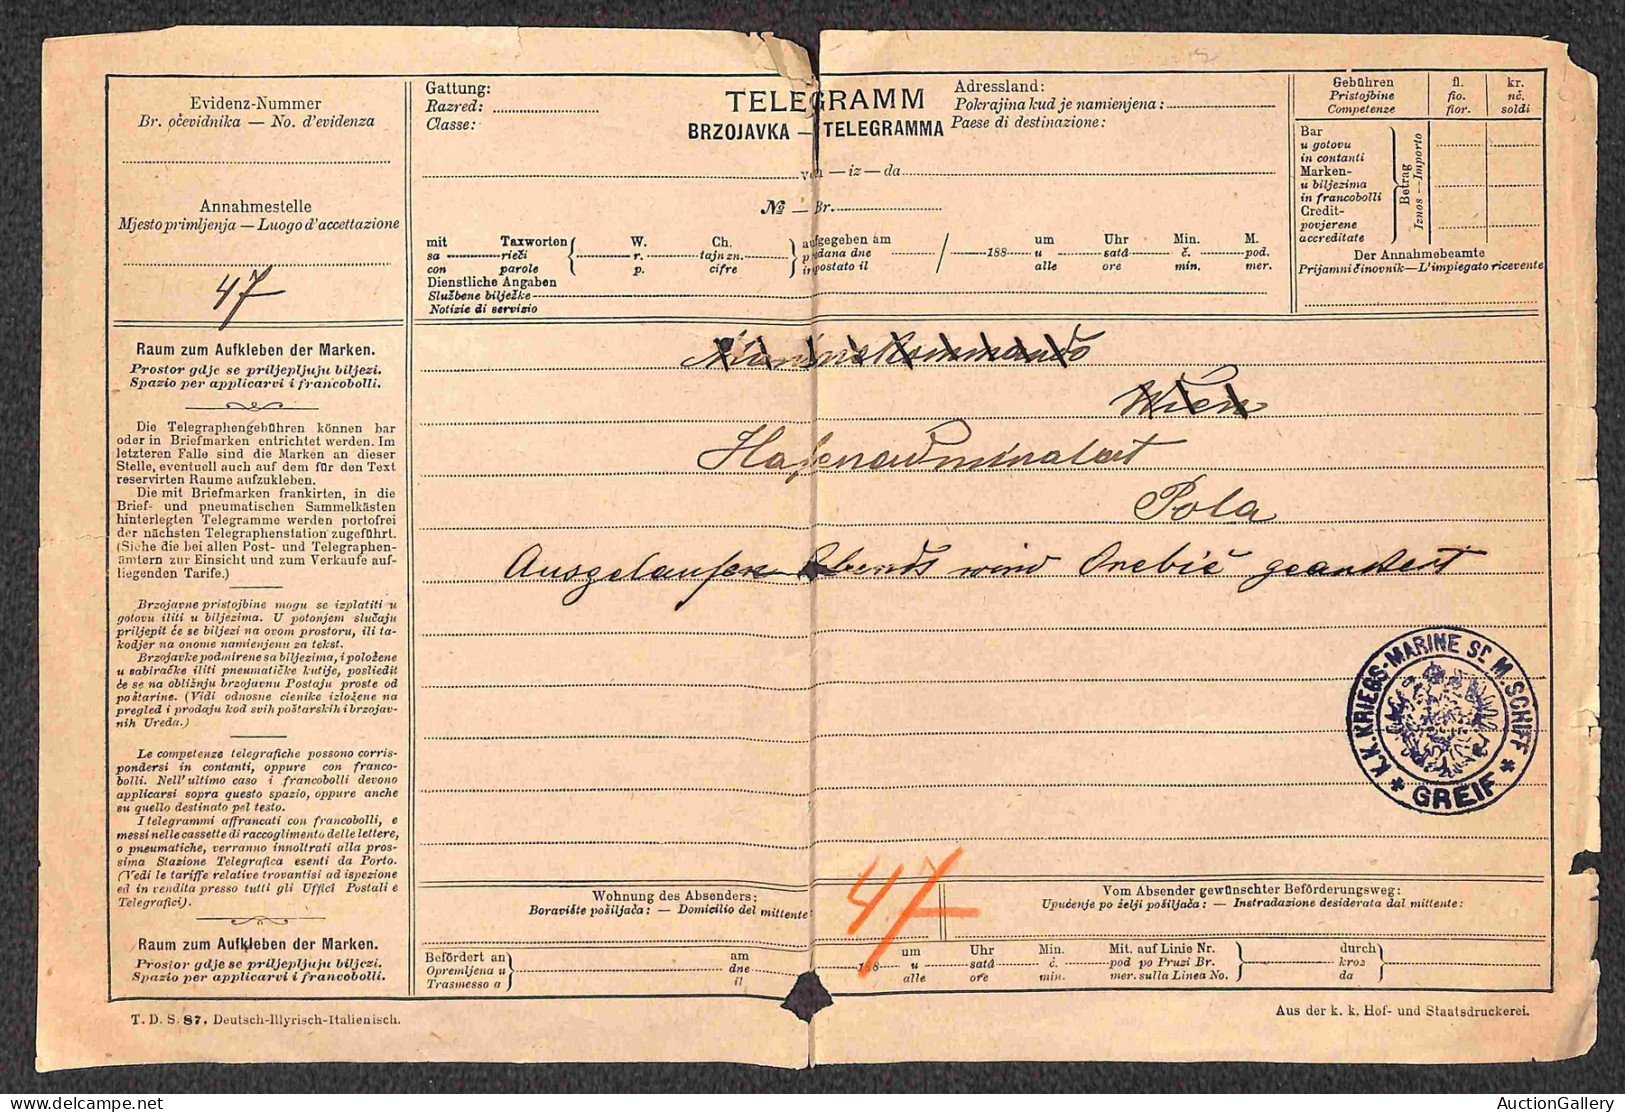 Evidenz-Nummer
Br. očevidnika — No. d'evidenza
Annahmestelle
Mjesto primljenja — Luogo d'accettazione
47
Raum zum Aufkleben der Marken.
Prostor gdje se priljepljuju biljezi.
Spazio per applicarvi i francobolli.
Die Telegraphengebühren können bar
oder in Briefmarken entrichtet werden. Im
letzteren Falle sind die Marken an dieser
Stelle, eventuell auch auf dem für den Text
reservirten Raume aufzukleben.
Die mit Briefmarken frankirten, in die
Brief- und pneumatischen Sammelkästen
hinterlegten Telegramme werden portofrei
der nächsten Telegraphenstation zugeführt.
(Siche die bei allen Post- und Telegraphen-
ämtern zur Einsicht und zum Verkaufe auf-
liegenden Tarife.)
Brzojavne pristojbine mogu se izplatiti u
gotovu iliti u biljezima. U potonjem slučaju
priljepit će se biljezi na ovom prostoru, ili ta-
kodjer na onome namienjenu za tekst.
Brzojavke podmirene sa biljezima, i položene
u sabiračke iliti pneumatičke kutije, posliedit
će se na obližnju brzojavnu Postaju proste od
poštarine. (Vidi odnosne cienike izložene na
pregled i prodaju kod svih poštarskih i brzojav-
nih Ureda.)
Le competenze telegrafiche possono corris-
pondersi in contanti, oppure con franco-
bolli. Nell' ultimo caso i francobolli devono
applicarsi sopra questo spazio, oppure anche
su quello destinato pel testo.
I telegrammi affrancati con francobolli, e
messi nelle cassette di raccoglimento delle lettere,
o pneumatiche, verranno innoltrati alla pros-
sima Stazione Telegrafica esenti da Porto.
(Vedi le tariffe relative trovantisi ad ispezione
ed in vendita presso tutti gli Uffici Postali e
Telegrafici).
Raum zum Aufkleben der Marken.
Prostor gdje se priljepljuju biljezi.
Spazio per applicarvi i francobolli.
T. D. S. 87. Deutsch-Illyrisch-Italienisch.
Gattung:
Razred:
Classe:
TELEGRAMM
BRZOJAVKA — TELEGRAMMA
Adressland:
Pokrajina kud je namienjena:
Paese di destinazione:
von — iz — da
No — Br.
mit Taxworten W. Ch. aufgegeben am um Uhr Min. M.
sa rieči r. tajn zn. predana dne / 188 u satá č. pod.
con parole p. cifre impostato il alle ore min. mer.
Dienstliche Angaben
Službene bilježke
Notizie di servizio
Gebühren fl. kr.
Pristojbine fio. nč.
Competenze fior. soldi
Bar
u gotovu
in contanti
Marken-
u biljezima
in francobolli
Credit-
povjerene
accreditate
Betrag
Iznos — Importo
Der Annahmebeamte
Prijamni činovnik — L'impiegato ricevente
Marinekommando
Wien
Hafenadmiralat
Pola
Ausgelaufen Abends wird Orebić geankert
K.K. KRIEGS-MARINE Sr. M. SCHIFF
* GREIF *
47
Wohnung des Absenders:
Boravište pošiljača: — Domicilio del mittente:
Vom Absender gewünschter Beförderungsweg:
Upućenje po želji pošiljača: — Instradazione desiderata dal mittente:
Befördert an am um Uhr Min. Mit. auf Linie Nr. durch
Opremljena u dne 188 u satá č. pod po Pruzi Br. kroz
Trasmesso a il alle ore min. mer. sulla Linea No. da
Aus der k. k. Hof- und Staatsdruckerei.
AuctionGallery